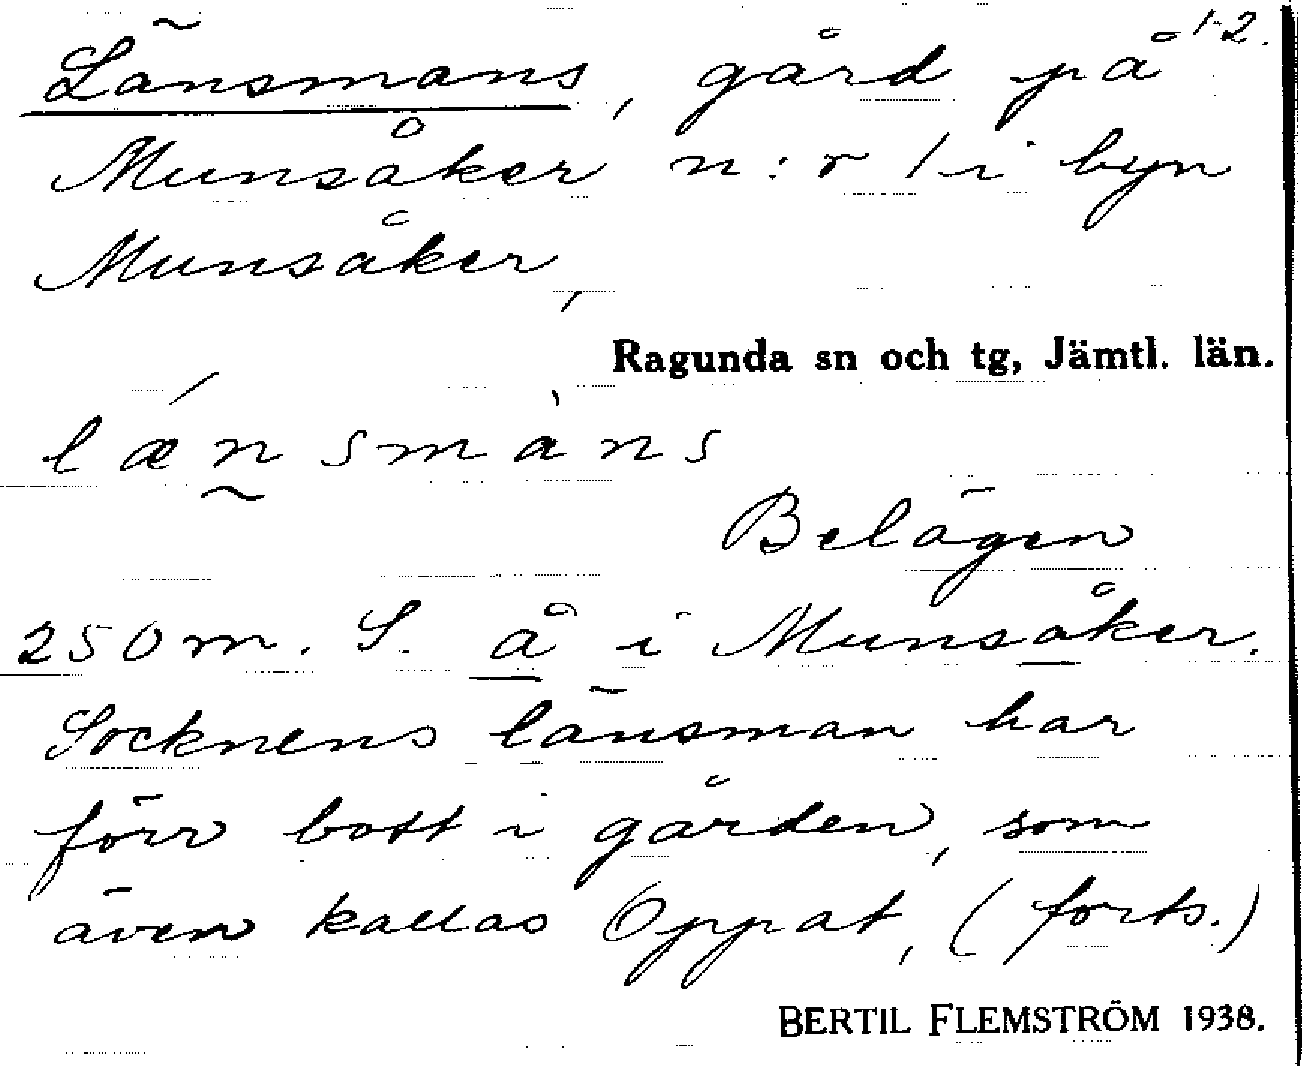 Länsmans, gård på 1-2.
Munsåker n:r 1 i byn
Munsåker,
Ragunda sn och tg, Jämtl. län.
lænsmàns
Belägen
250 m. S. å i Munsåker.
Socknens länsman har
förr bott i gården, som
även kallas Oppat, (forts.)
BERTIL FLEMSTRÖM 1938.